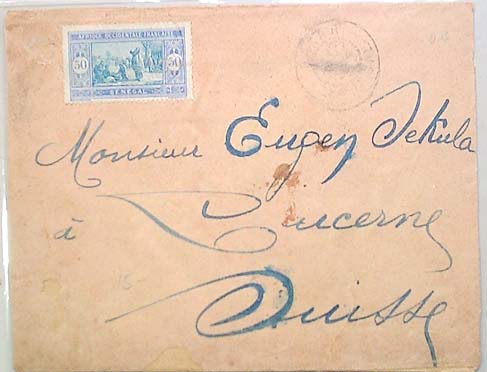 AFRIQUE OCCIDENTALE FRANÇAISE
50 50
SÉNÉGAL
Monsieur Eugen Sekula
à Lucerne
Suisse